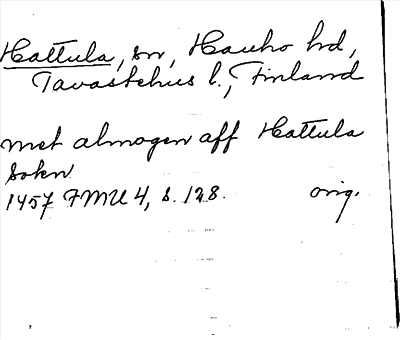 Hattula, sn, Hauho hd,
Tavastehus l., Finland
met almogen aff Hattula
Sokn
1457 FMU 4, s. 128. orig.